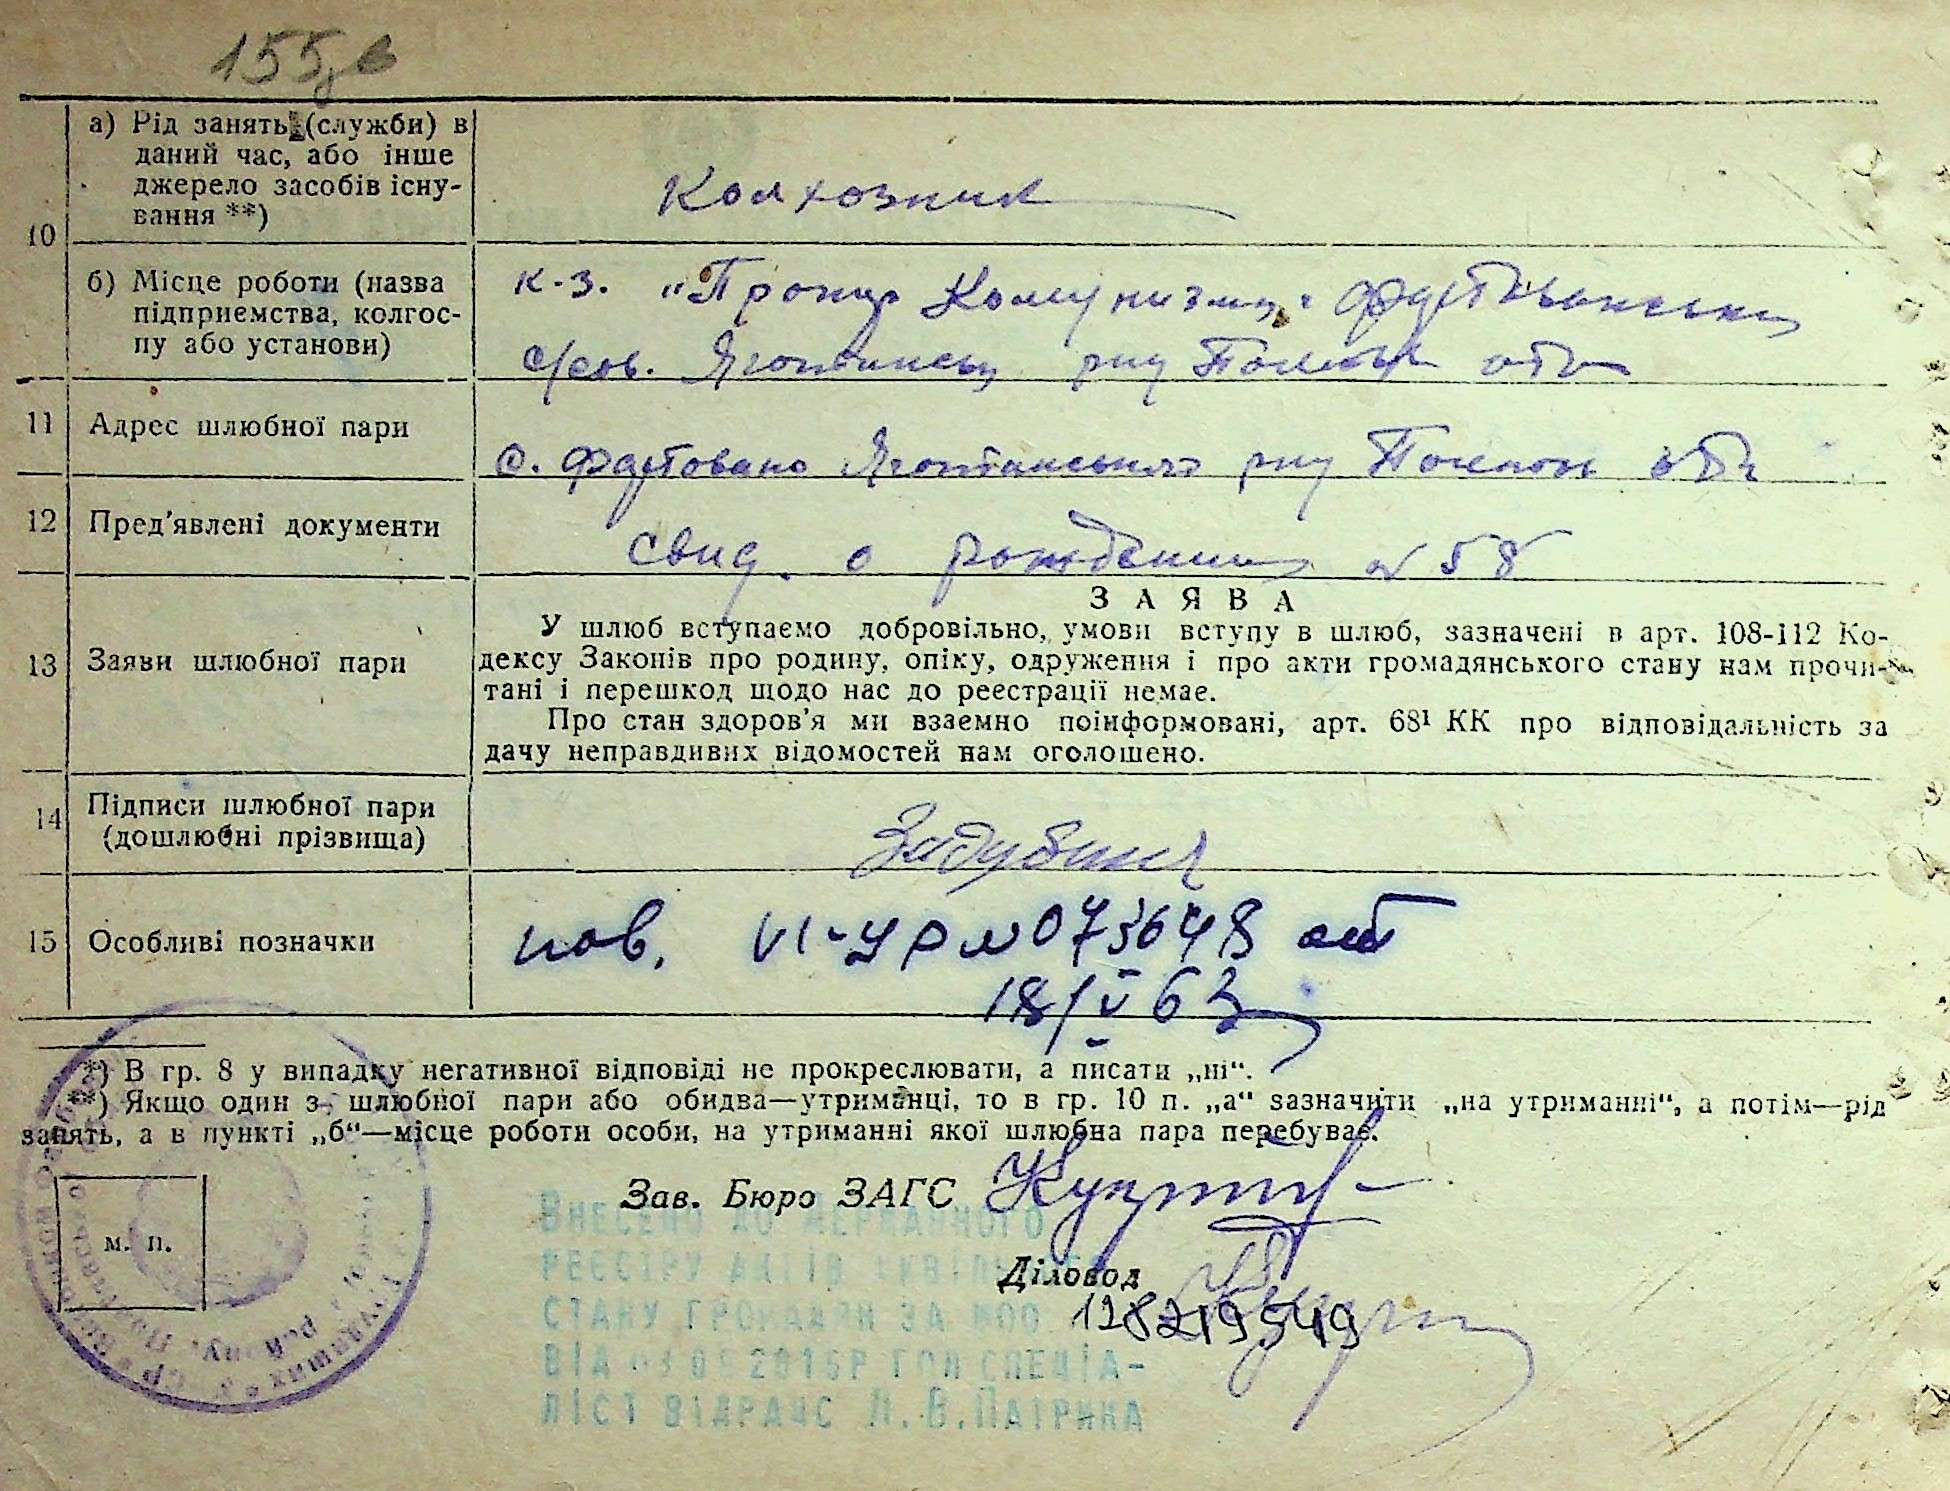 155
а) Рід занять (служби) в
даний час, або інше
джерело засобів існу-
вання **)
10
Колхозник
б) Місце роботи (назва
підприємства, колгос-
пу або установи)
к-з.
с/сов. Яготинськ р-ну Полтав обл
11 Адрес шлюбної пари
с. Фарбовано Яготинського р-ну Полтав обл
12 Пред'явлені документи
свид. о рождении № 58
ЗАЯВА
13 Заяви шлюбної пари
У шлюб вступаємо добровільно, умови вступу в шлюб, зазначені в арт. 108-112 Ко-
дексу Законів про родину, опіку, одруження і про акти громадянського стану нам прочи-
тані і перешкод щодо нас до реєстрації немає.
Про стан здоров'я ми взаємно поінформовані, арт. 68¹ КК про відповідальність за
дачу неправдивих відомостей нам оголошено.
14 Підписи шлюбної пари
(дошлюбні прізвища)
15 Особливі позначки
пов. VI-УР № 073648 от
18/V 63
*) В гр. 8 у випадку негативної відповіді не прокреслювати, а писати „ні“.
**) Якщо один з шлюбної пари або обидва—утриманці, то в гр. 10 п. „а“ зазначити „на утриманні“, а потім—рід
занять, а в пункті „б“—місце роботи особи, на утриманні якої шлюбна пара перебуває.
Зав. Бюро ЗАГС
м. п.
Діловод
128219549
Внесено до Державного
реєстру актів цивільного
стану громадян за №00
від 2016р гол спеціа-
ліст відрацс